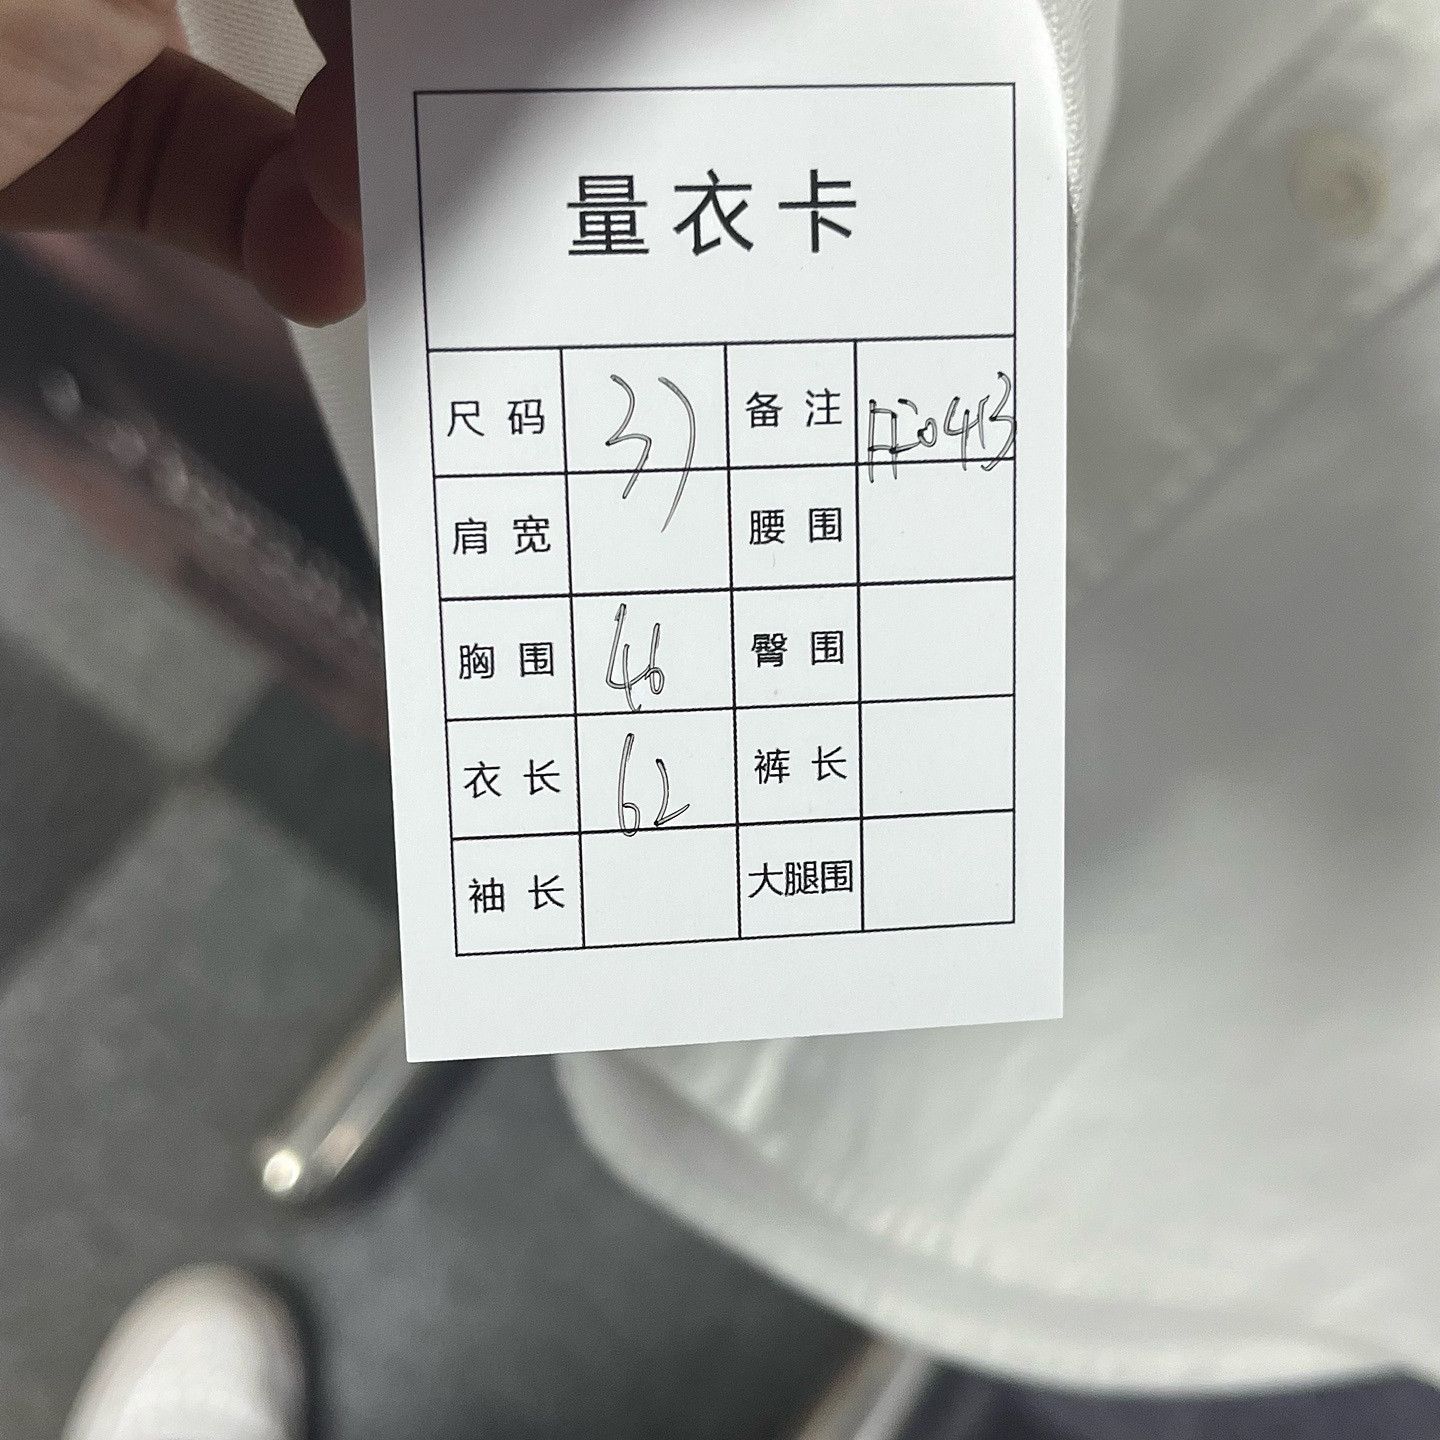 量衣卡
尺码 37 备注 0413
肩宽 腰围
胸围 46 臀围
衣长 62 裤长
袖长 大腿围